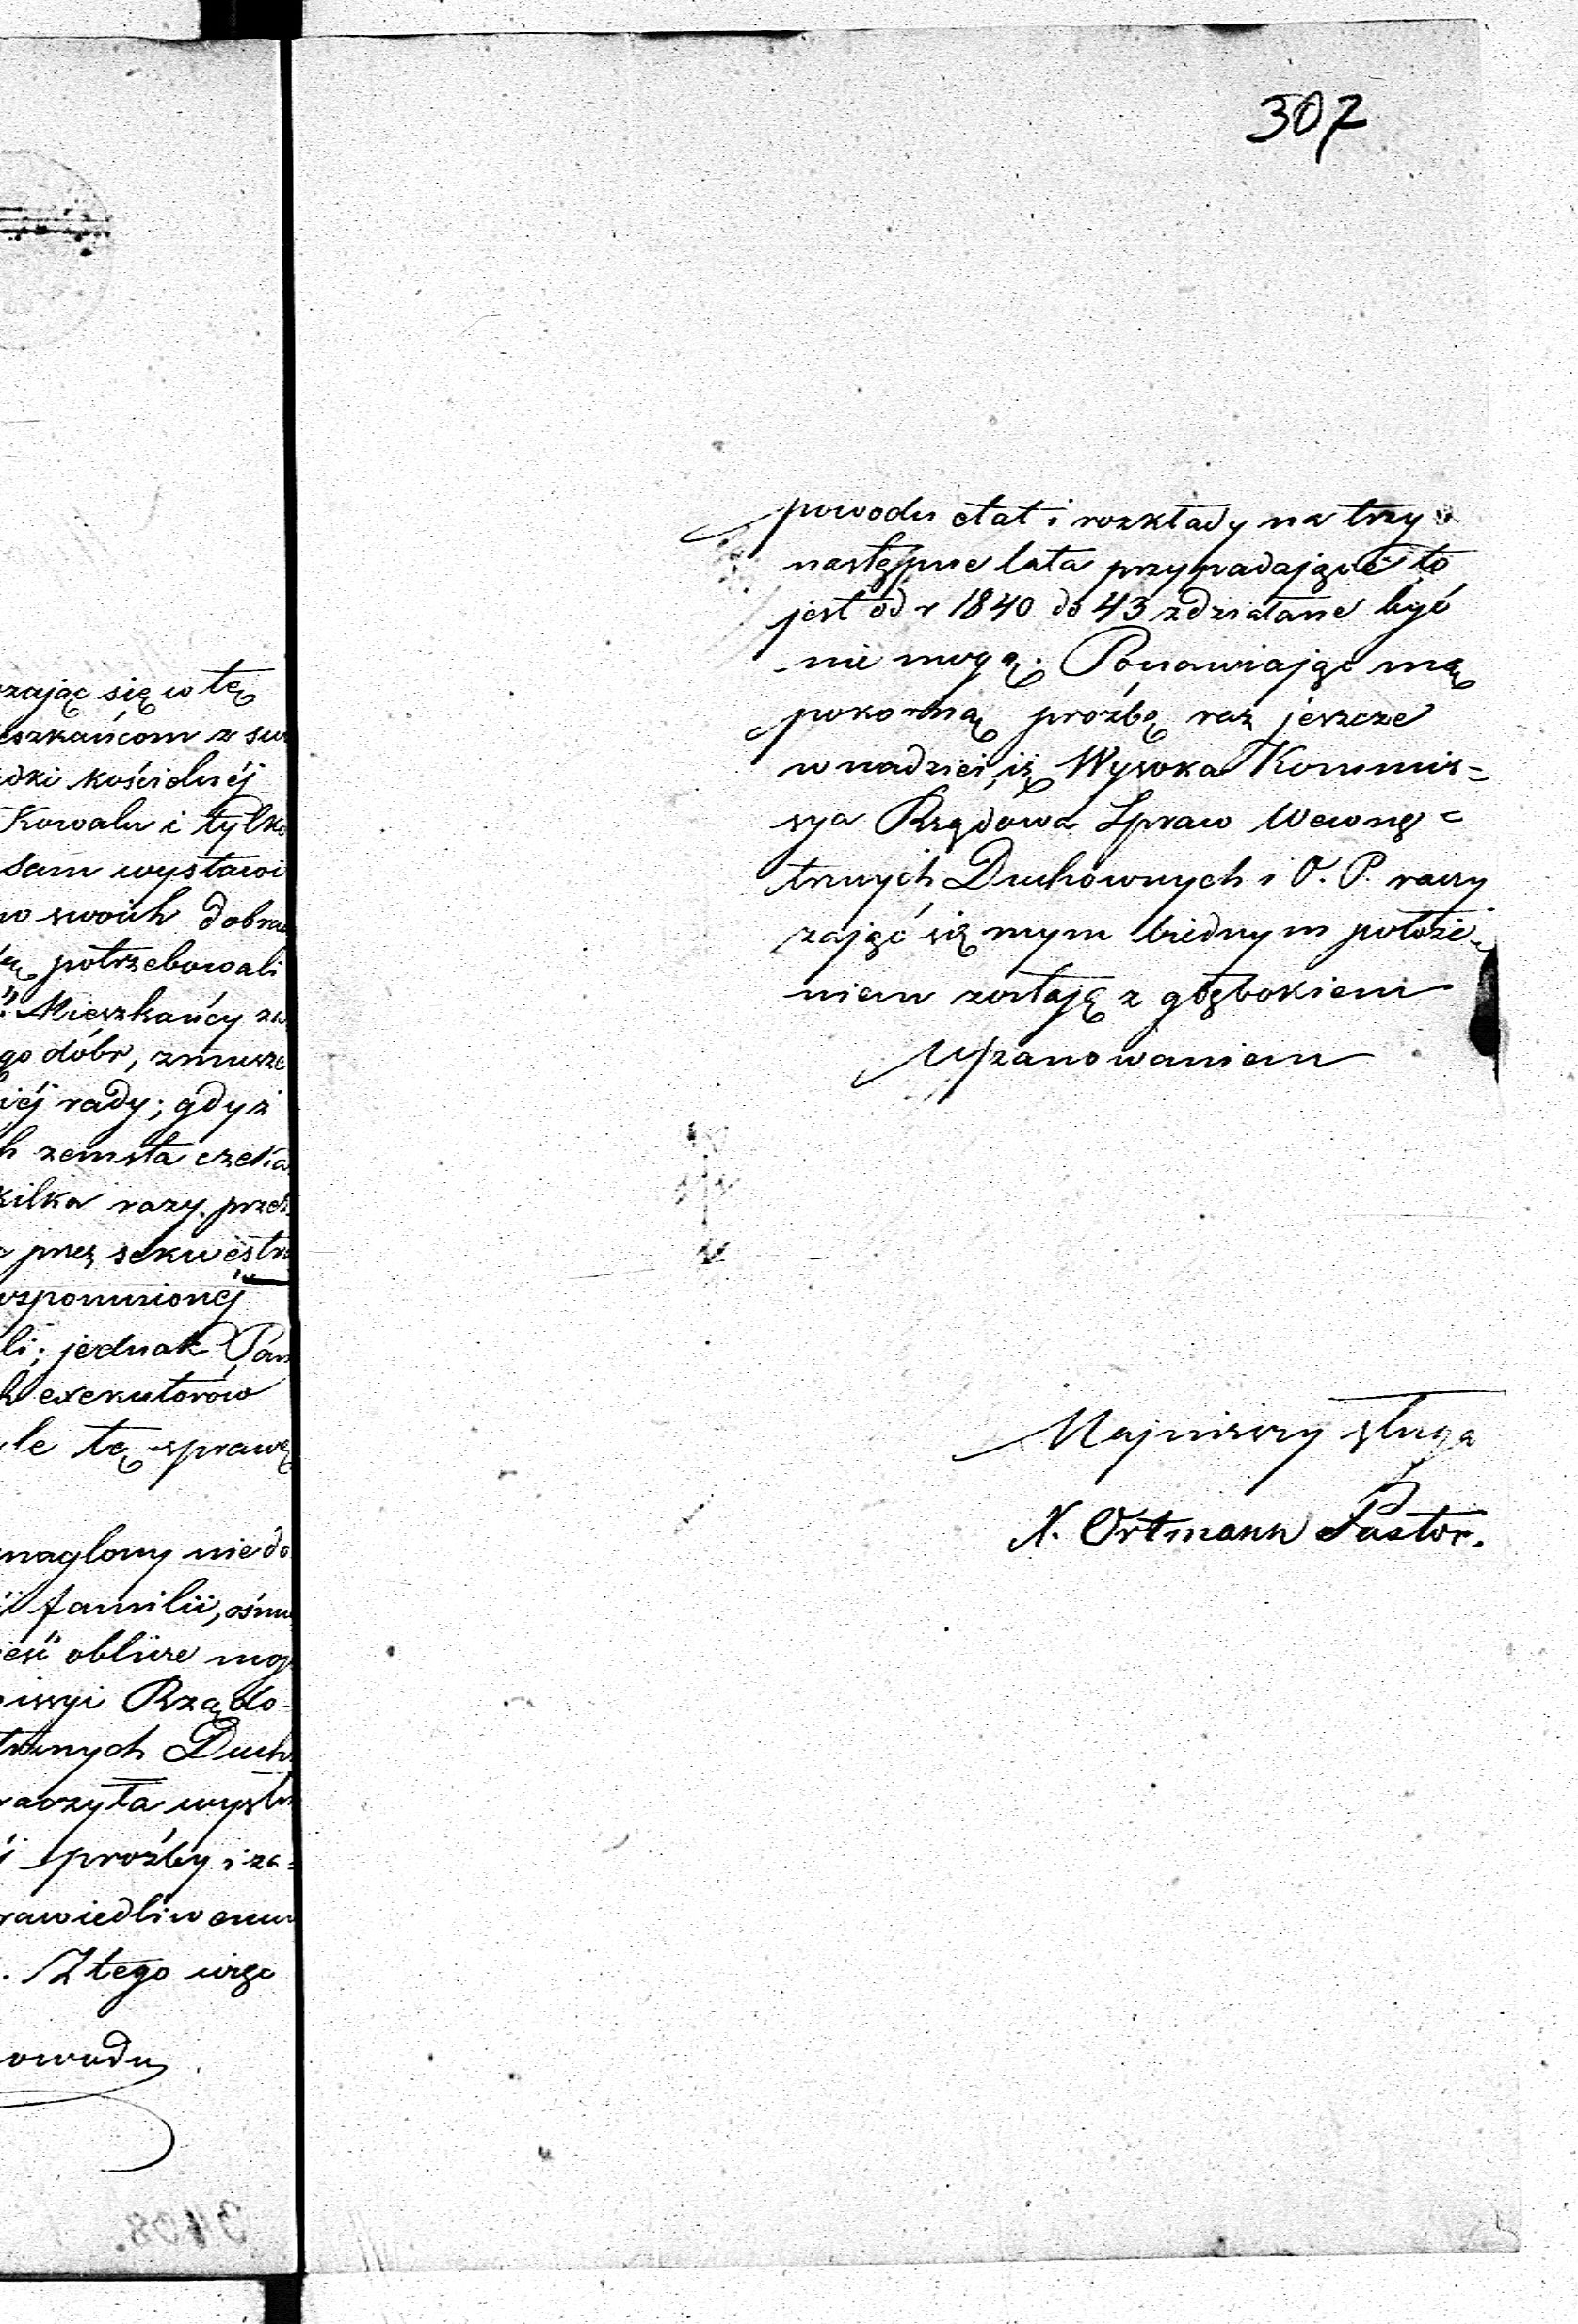 zając się w tę
eszkańcom z su
dki kościelnéj
Kowalu i tylko
sam wystawi
w swoich dobra
potrzebowali
Mieszkańcy za
go dóbr, zmusze
iéj rady; gdyż
h zemsta czeka
kilka razy prze
przez sekwestra
wspomnionéj
li; jednak Pan
h exekutorów
le tę sprawę
naglony niedo
familii, ośmi
oblize mo
issyi Rządo-
trznych Duch
raczyła wysłu
prośby i za=
rawiedliwemu
. Z tego więc
owodu
307
powodu etat i rozkłady na trzy
następne lata przypadające to
jest od r 1840 do 43 zdziałane być
nie mogą. Ponawiając mą
pokorną proźbę raz jeszcze
w nadziei, iż Wysoka Kommis=
sya Rządowa Spraw Wewnę=
trznych Duchownych i O. P. raczy
zająć się mym biednym położe=
niem zostaję z głębokiem
Uszanowaniem
Najniższy sługa
X. Ortmann Pastor.